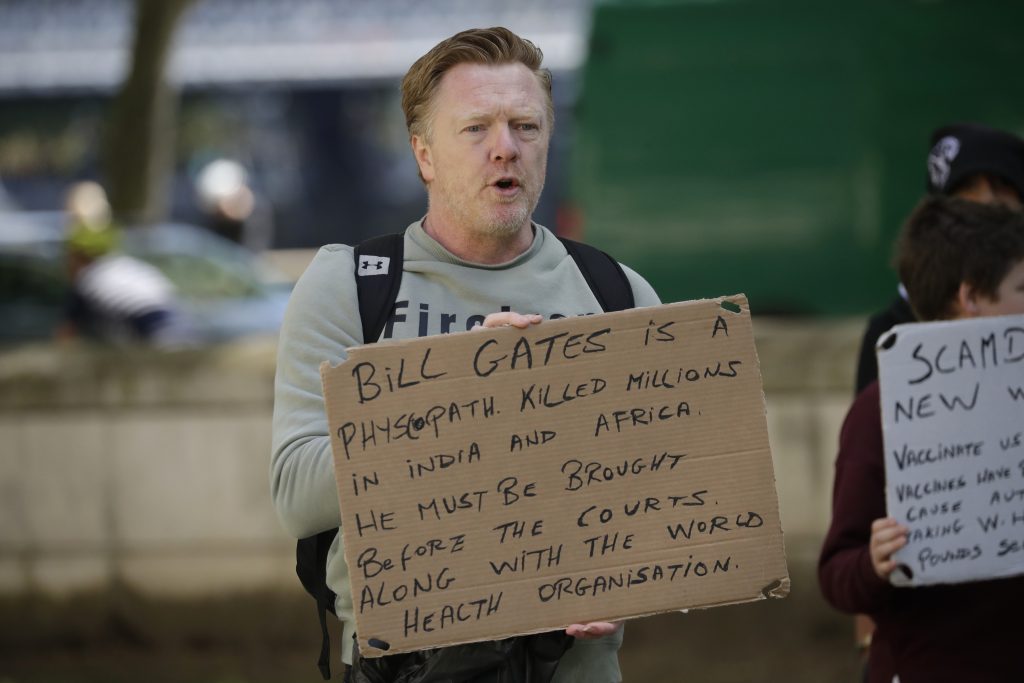 Fire
BILL GATES IS A
PHYSCOPATH. KILLED MILLIONS
IN INDIA AND AFRICA.
HE MUST BE BROUGHT
BEFORE THE COURTS.
ALONG WITH THE WORLD
HEALTH ORGANISATION.
SCAMD
NEW W
VACCINATE US
VACCINES HAVE
CAUSE AUT
TAKING W.H
POUNDS SE